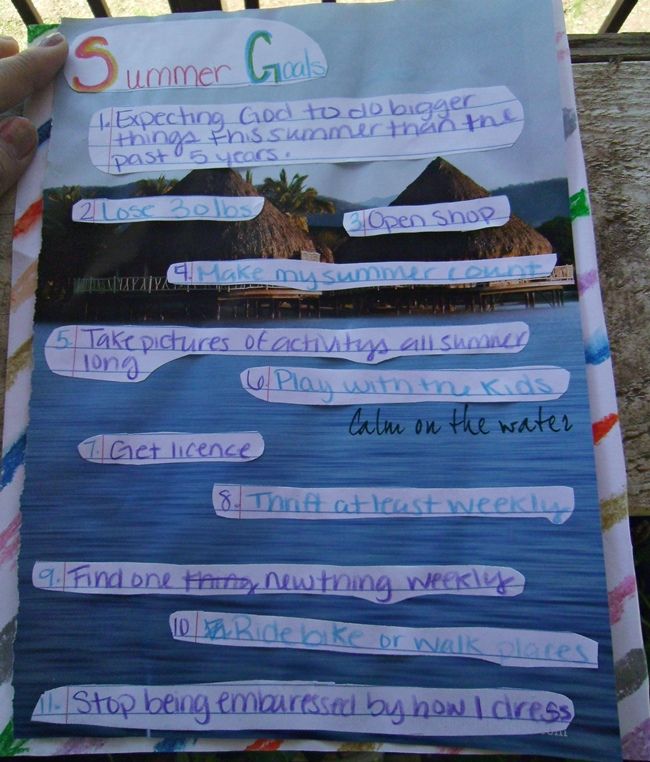 Summer Goals
1. Expecting God to do bigger
things this summer than the
past 5 years.
2. Lose 30 lbs
3. Open shop
4. Make my summer count
5. Take pictures of activitys all summer
long
6. Play with the Kids
Calm on the water
7. Get licence
8. Thrift at least weekly
9. Find one thing new thing weekly
10 Ride bike or walk places
11. Stop being embaressed by how I dress